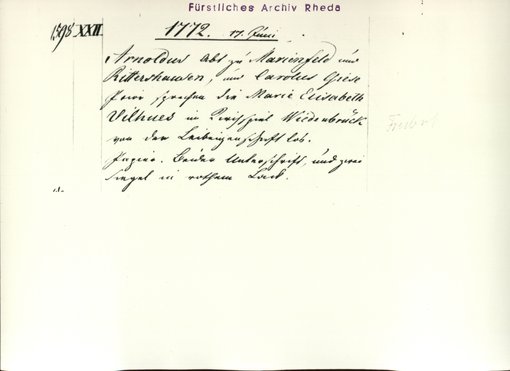 Fürstliches Archiv Rheda
1598 XXII. 1772. 17. Juni
Arnoldus Abt zu Marienfeld und
Rittershausen, und Carolus Giese
Prior sprechen die Marie Elisabeth
Vilhues im Kirchspiel Wiedenbrück
von der Leibeigenschaft los.
Papier. Beider Unterschrift, und zwei
Siegel in rothem Lack.